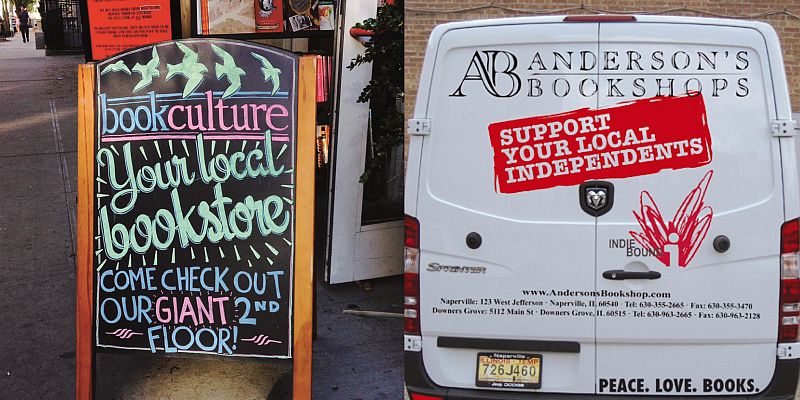 bookculture
Your local
bookstore
COME CHECK OUT
OUR GIANT 2ND
FLOOR!
AB ANDERSON'S
BOOKSHOPS
SUPPORT
YOUR LOCAL
INDEPENDENTS
INDIE
BOUND
SPRINTER
www.AndersonsBookshop.com
Naperville: 123 West Jefferson · Naperville, IL 60540 · Tel: 630-355-2665 · Fax: 630-355-3470
Downers Grove: 5112 Main St · Downers Grove, IL 60515 · Tel: 630-963-2665 · Fax: 630-963-2128
Naperville
ILLINOIS - TEMP
726J460
Jeep DODGE
PEACE. LOVE. BOOKS.